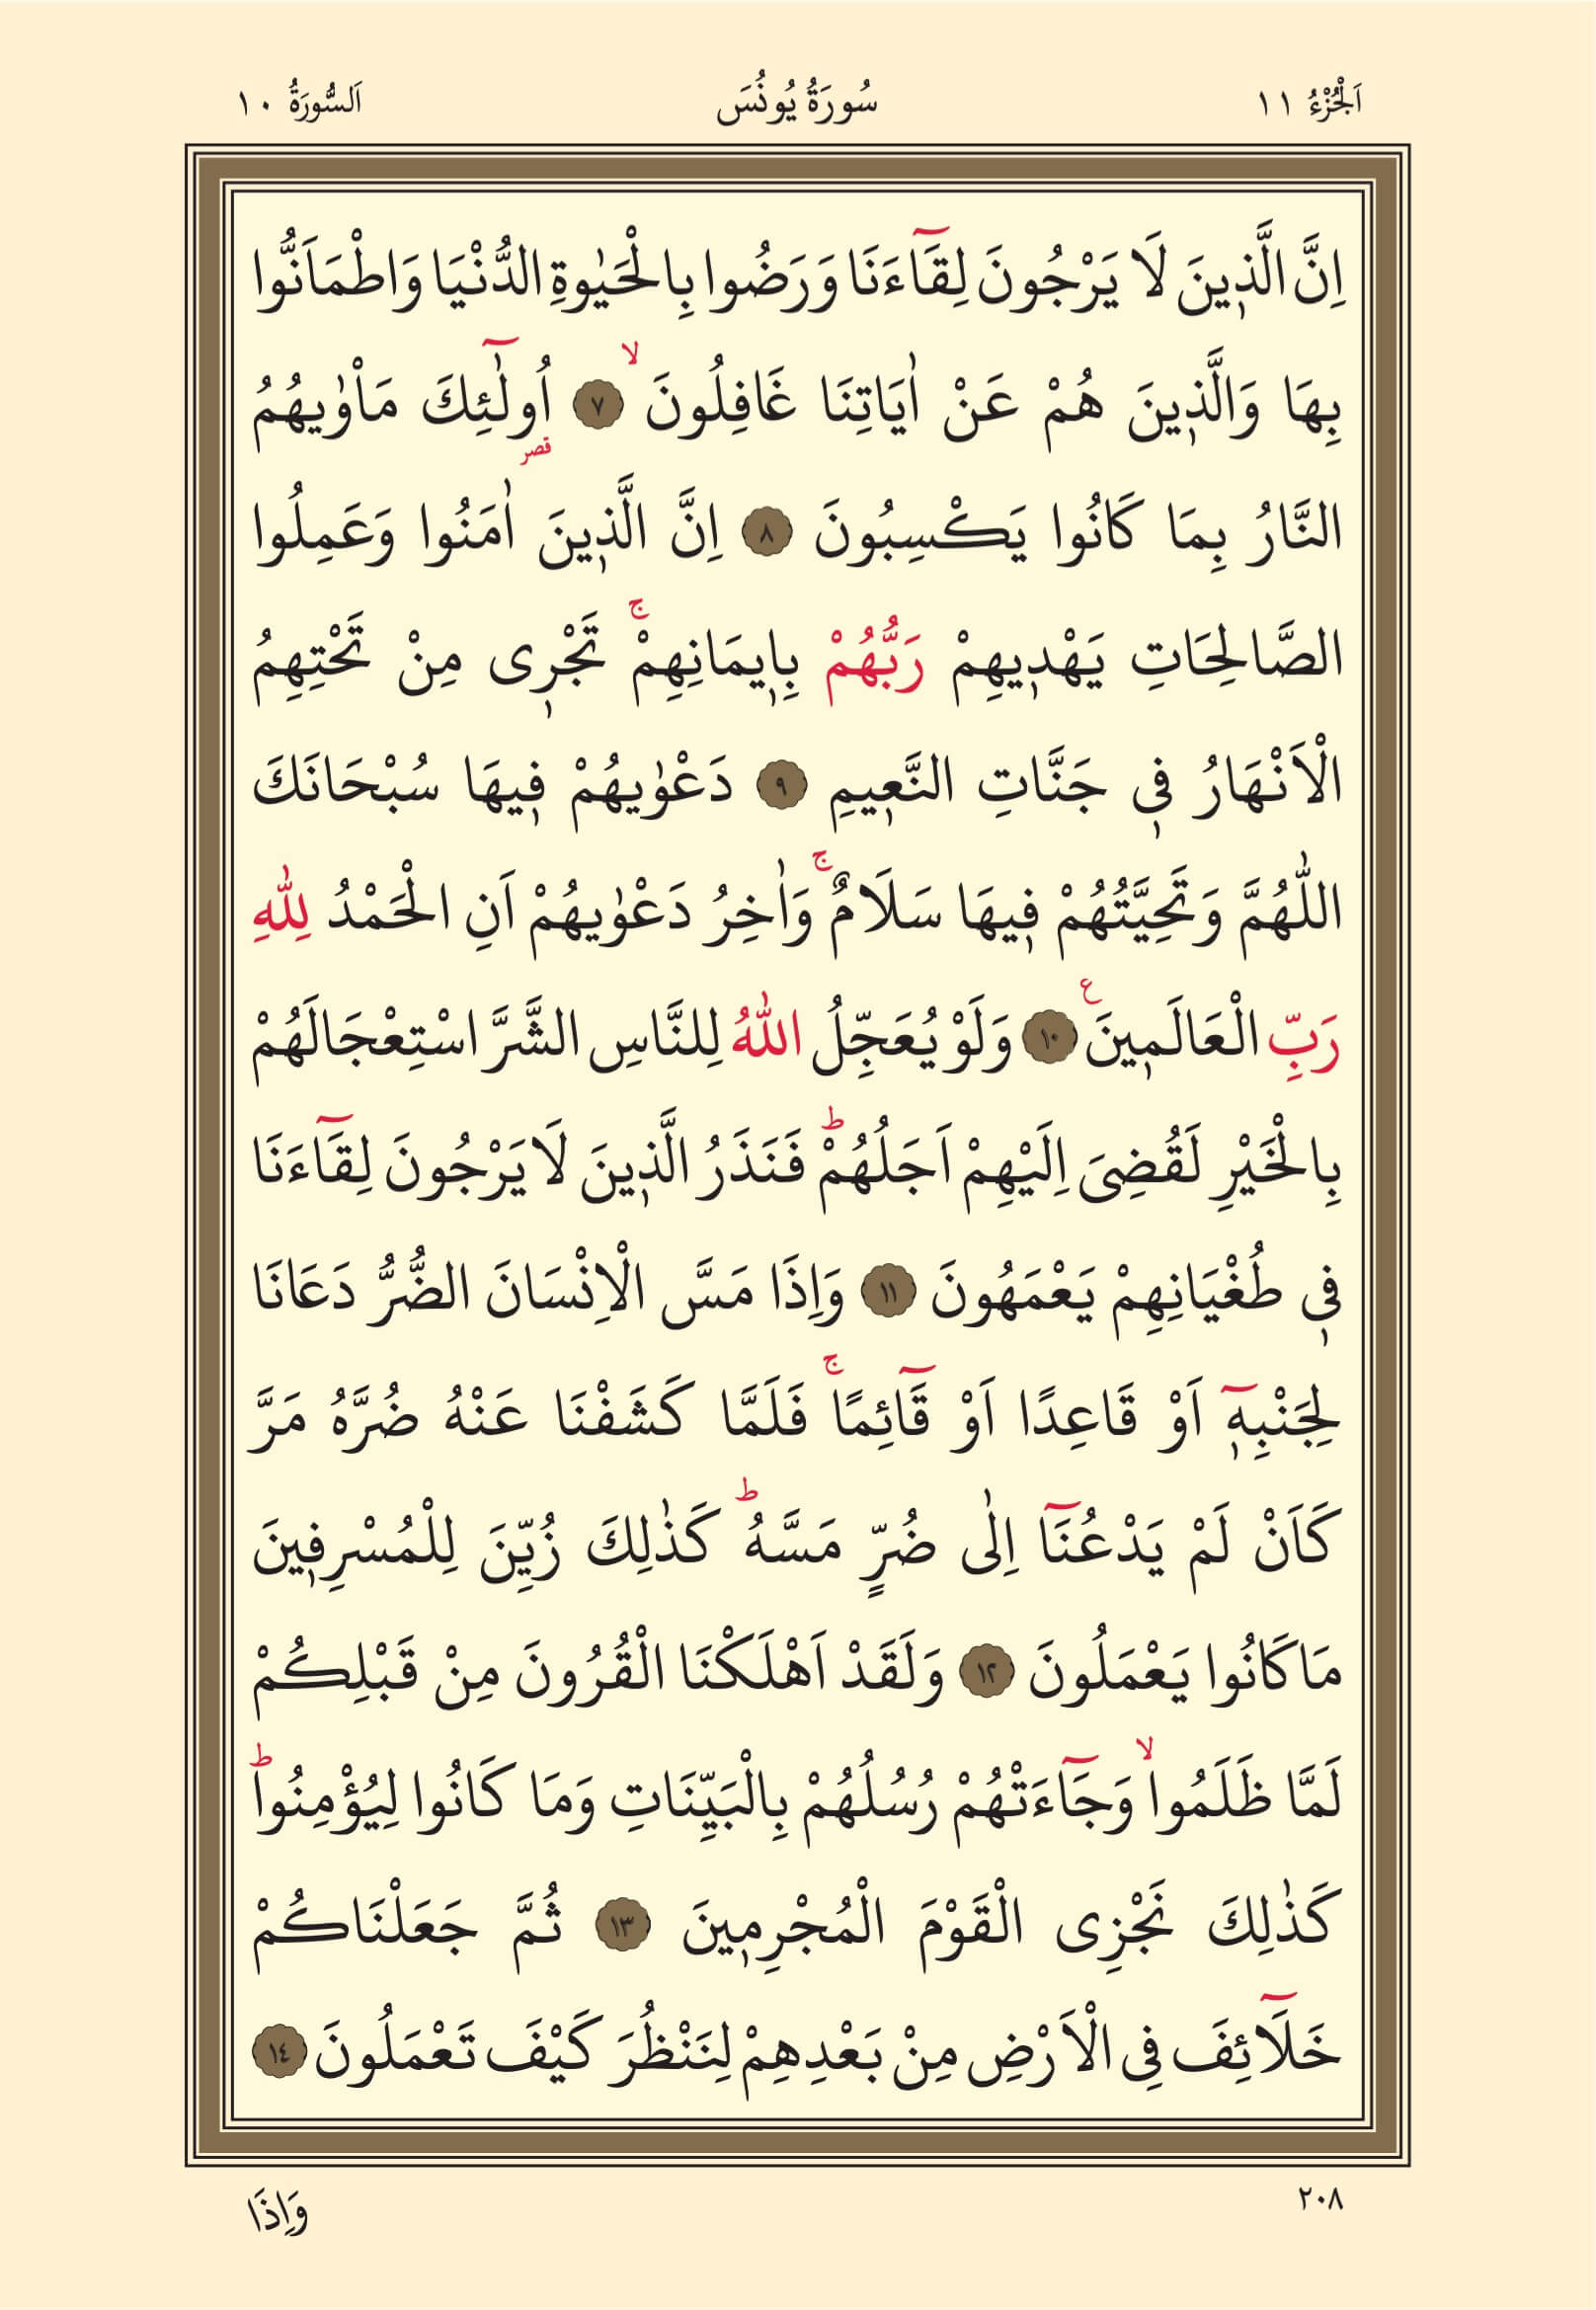 اَلْجُزْءُ ١١
سُورَةُ يُونُسَ
اَلسُّورَةُ ١٠
اِنَّ الَّذ۪ينَ لَا يَرْجُونَ لِقَٓاءَنَا وَرَضُوا بِالْحَيٰوةِ الدُّنْيَا وَاطْمَاَنُّوا
بِهَا وَالَّذ۪ينَ هُمْ عَنْ اٰيَاتِنَا غَافِلُونَۙ ﴿٧﴾ اُو۬لٰٓئِكَ مَاْوٰيهُمُ
النَّارُ بِمَا كَانُوا يَكْسِبُونَ ﴿٨﴾ اِنَّ الَّذ۪ينَ اٰمَنُوا وَعَمِلُوا
الصَّالِحَاتِ يَهْد۪يهِمْ رَبُّهُمْ بِا۪يمَانِهِمْۚ تَجْر۪ى مِنْ تَحْتِهِمُ
الْاَنْهَارُ ف۪ى جَنَّاتِ النَّع۪يمِ ﴿٩﴾ دَعْوٰيهُمْ ف۪يهَا سُبْحَانَكَ
اللّٰهُمَّ وَتَحِيَّتُهُمْ ف۪يهَا سَلَامٌۚ وَاٰخِرُ دَعْوٰيهُمْ اَنِ الْحَمْدُ لِلّٰهِ
رَبِّ الْعَالَم۪ينَ ع ﴿١٠﴾ وَلَوْ يُعَجِّلُ اللّٰهُ لِلنَّاسِ الشَّرَّ اسْتِعْجَالَهُمْ
بِالْخَيْرِ لَقُضِىَ اِلَيْهِمْ اَجَلُهُمْۜ فَنَذَرُ الَّذ۪ينَ لَا يَرْجُونَ لِقَٓاءَنَا
ف۪ى طُغْيَانِهِمْ يَعْمَهُونَ ﴿١١﴾ وَاِذَا مَسَّ الْاِنْسَانَ الضُّرُّ دَعَانَا
لِجَنْبِه۪ٓ اَوْ قَاعِدًا اَوْ قَٓائِمًاۚ فَلَمَّا كَشَفْنَا عَنْهُ ضُرَّهُ مَرَّ
كَاَنْ لَمْ يَدْعُنَٓا اِلٰى ضُرٍّ مَسَّهُۜ كَذٰلِكَ زُيِّنَ لِلْمُسْرِف۪ينَ
مَا كَانُوا يَعْمَلُونَ ﴿١٢﴾ وَلَقَدْ اَهْلَكْنَا الْقُرُونَ مِنْ قَبْلِكُمْ
لَمَّا ظَلَمُواۙ وَجَٓاءَتْهُمْ رُسُلُهُمْ بِالْبَيِّنَاتِ وَمَا كَانُوا لِيُؤْمِنُواۜ
كَذٰلِكَ نَجْزِى الْقَوْمَ الْمُجْرِم۪ينَ ﴿١٣﴾ ثُمَّ جَعَلْنَاكُمْ
خَلَٓائِفَ فِى الْاَرْضِ مِنْ بَعْدِهِمْ لِنَنْظُرَ كَيْفَ تَعْمَلُونَ ﴿١٤﴾
٢٠٨
وَاِذَا